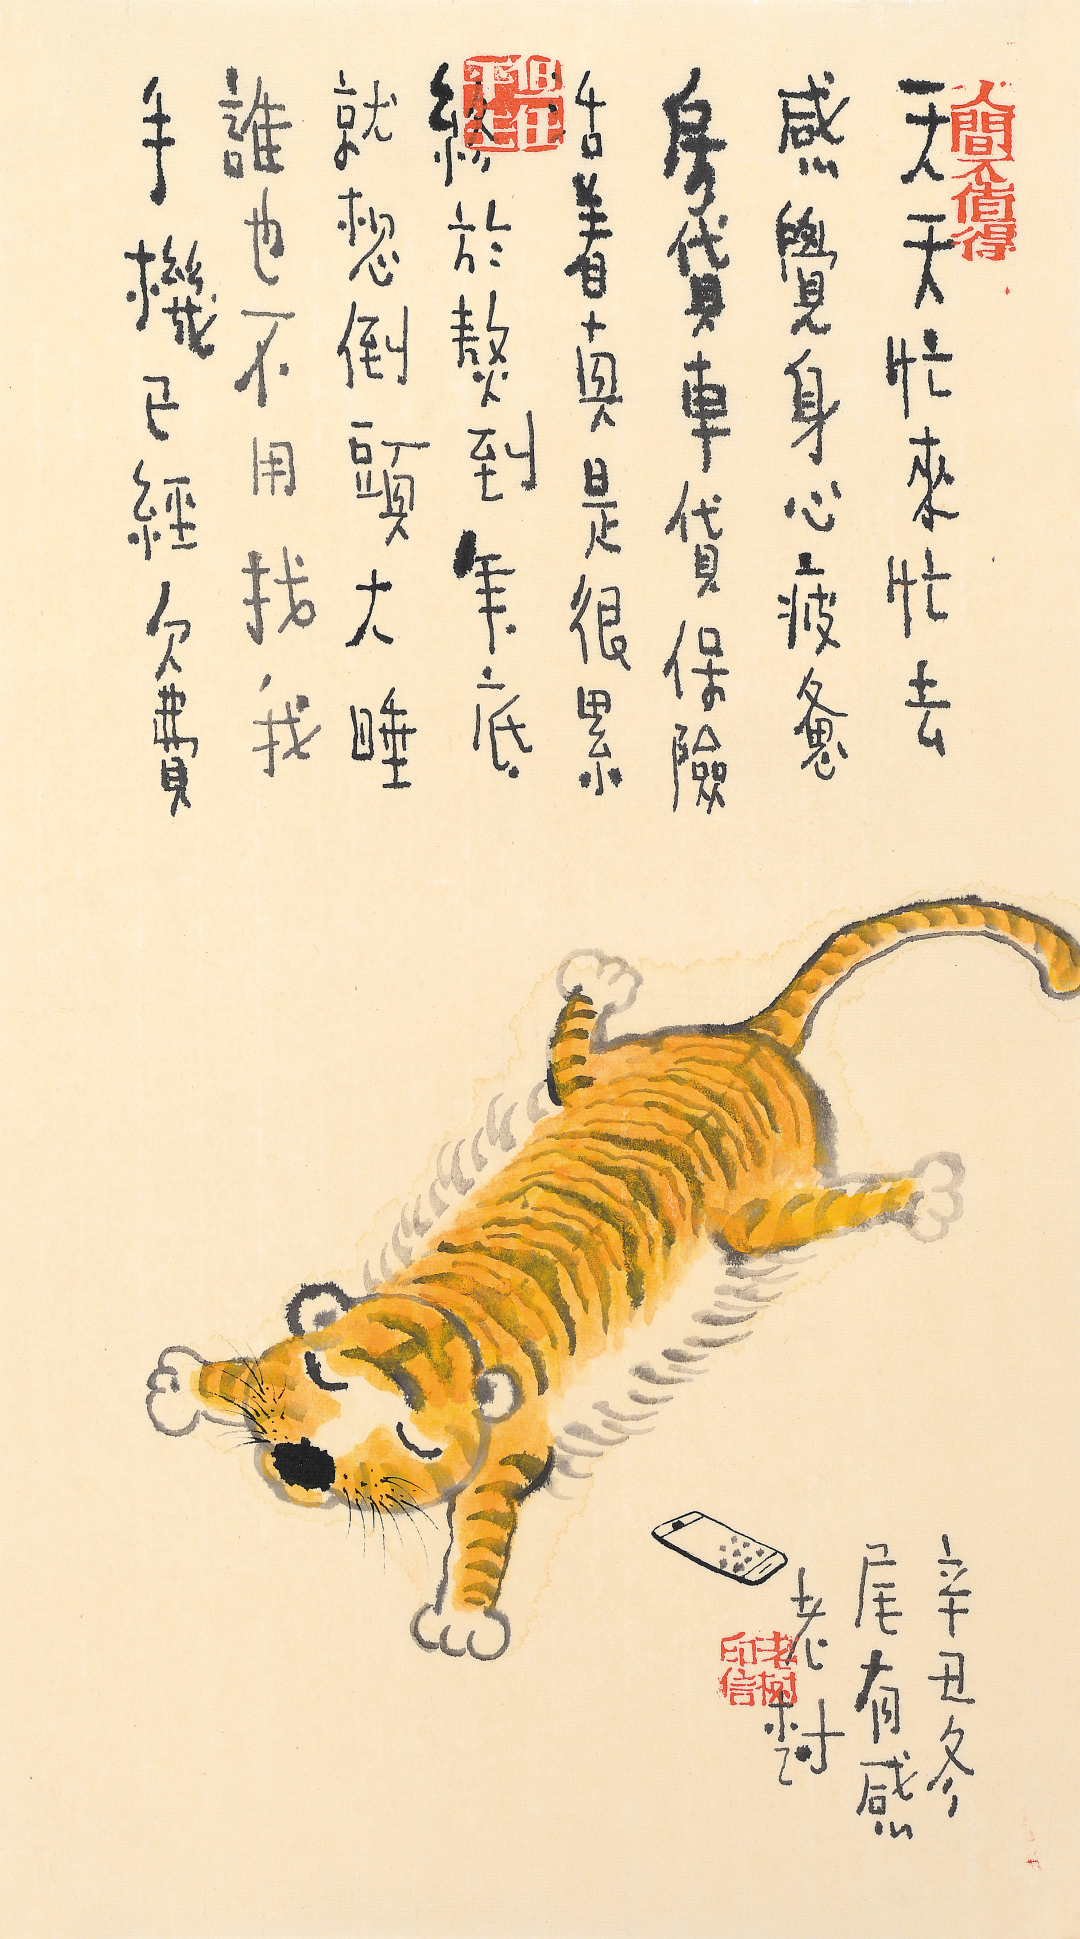 人間不值得
天天忙來忙去
感覺身心疲憊
房貸車貸保險
活着真是很累
終於熬到年底
就想倒頭大睡
誰也不用找我
手機已經欠費
辛丑冬
尾有感
老樹
老樹
印信